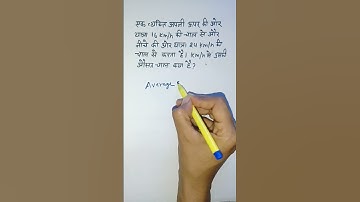 एक व्यक्ति अपनी ऊपर की ओर
यात्रा 16 km/h की चाल से और
नीचे की ओर यात्रा 24 km/h की
चाल से करता है। km/h में उसकी
औसत चाल क्या है?
Average s